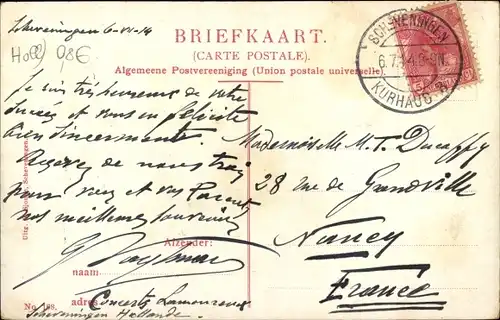 Scheveningen 6-VII-14
Holl 0,8€
BRIEFKAART.
(CARTE POSTALE).
Algemeene Postvereeniging (Union postale universelle).
SCHEVENINGEN
6.7.14 9-9N.
KURHAUS
Je suis très heureux de votre
succès et vous en félicite
bien sincèrement.
Recevez de nous trois
pour vous et vos Parents
nos meilleurs souvenirs
Mademoiselle M. T.
28 rue de Grandville
Nancy
France
Afzender:
naam:
adres: Concerts Lamoureux
Scheveningen Hollande.